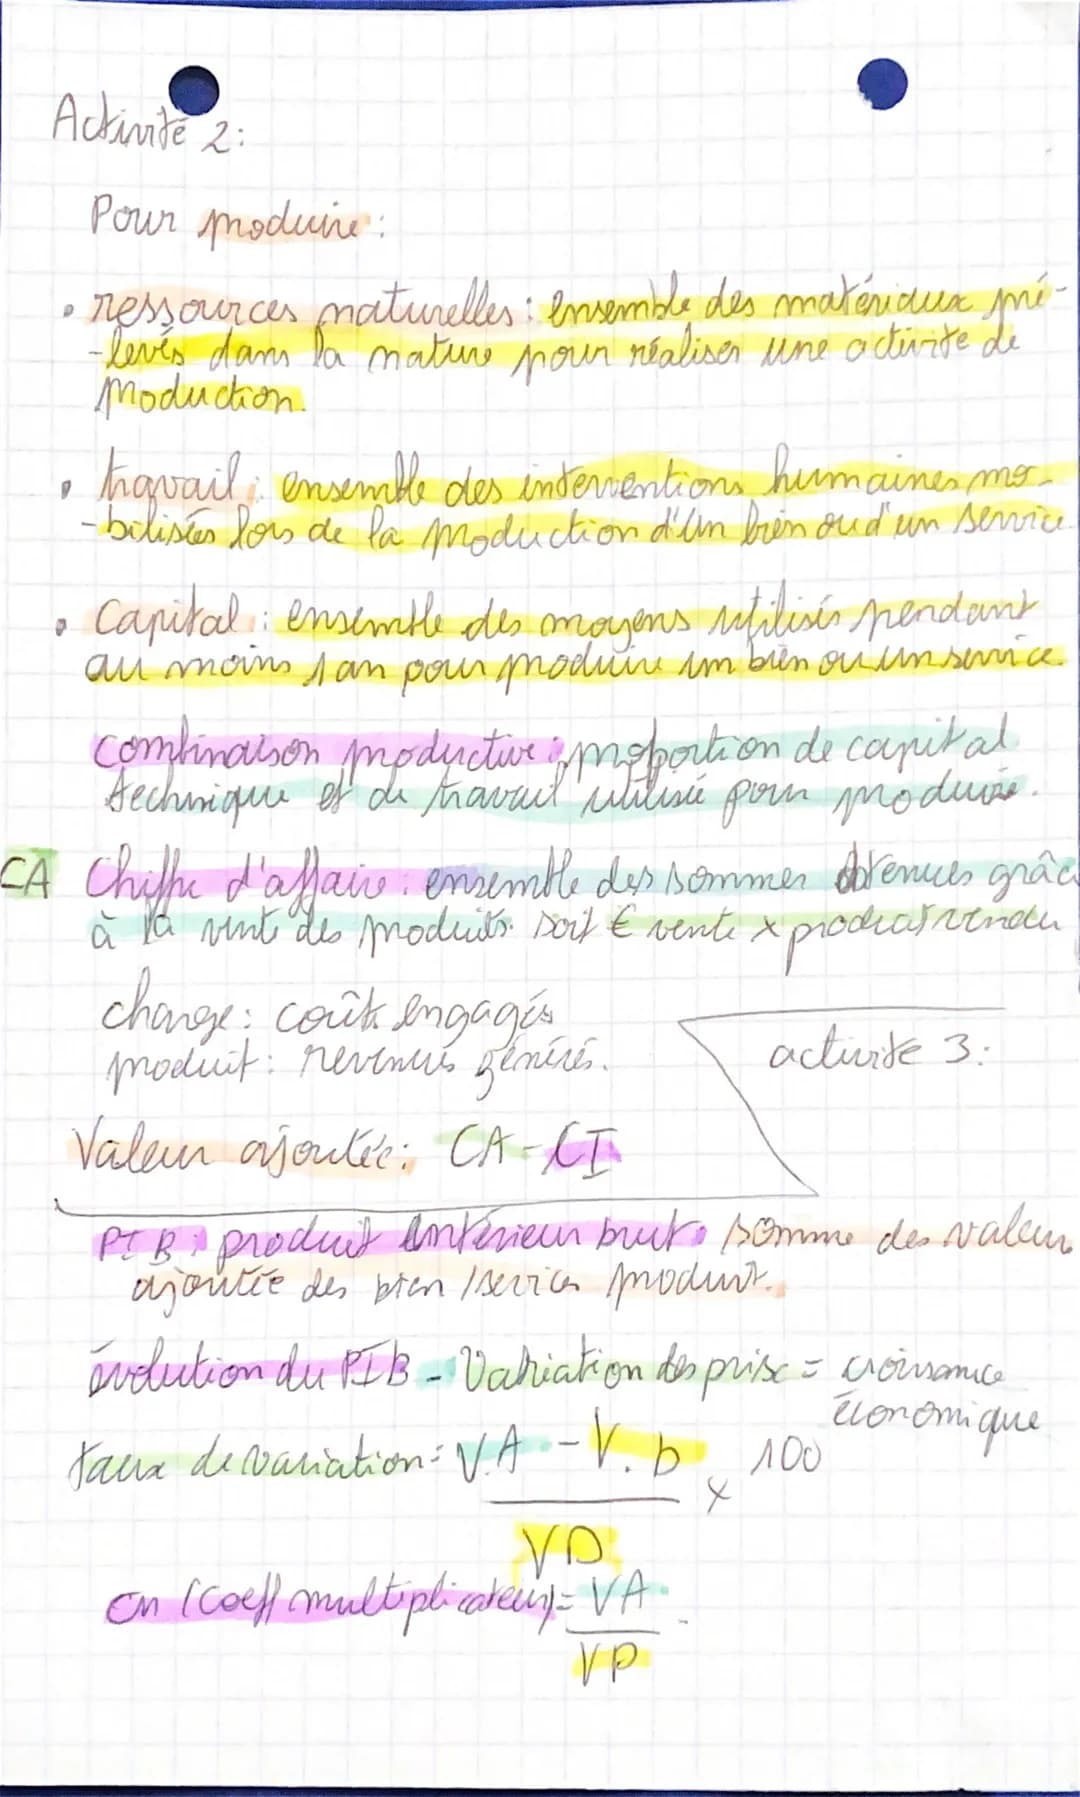 Activité 2:
Pour produire:
• ressources naturelles : ensemble des matériaux pré-
-levés dans la nature pour réaliser une activité de
production.
• travail : ensemble des interventions humaines mo-
-bilisées lors de la production d'un bien ou d'un service
• Capital : ensemble des moyens utilisés pendant
au moins 1 an pour produire un bien ou un service.
Combinaison productive : proportion de capital
technique et de travail utilisé pour produire.
CA Chiffre d'affaire : ensemble des sommes obtenues grâc
à la vente des produits. Soit € vente x produit vendu
charge : coûts engagés
produit : revenus générés.
activité 3:
Valeur ajoutée : CA - CI
PIB : produit intérieur brut. somme des valeur
ajoutée des bien / services produit.
évolution du PIB - Variation des prix = croissance
économique
taux de variation = V.A - V.D x 100
VD
Cm (coeff multiplicateur) = VA
VD